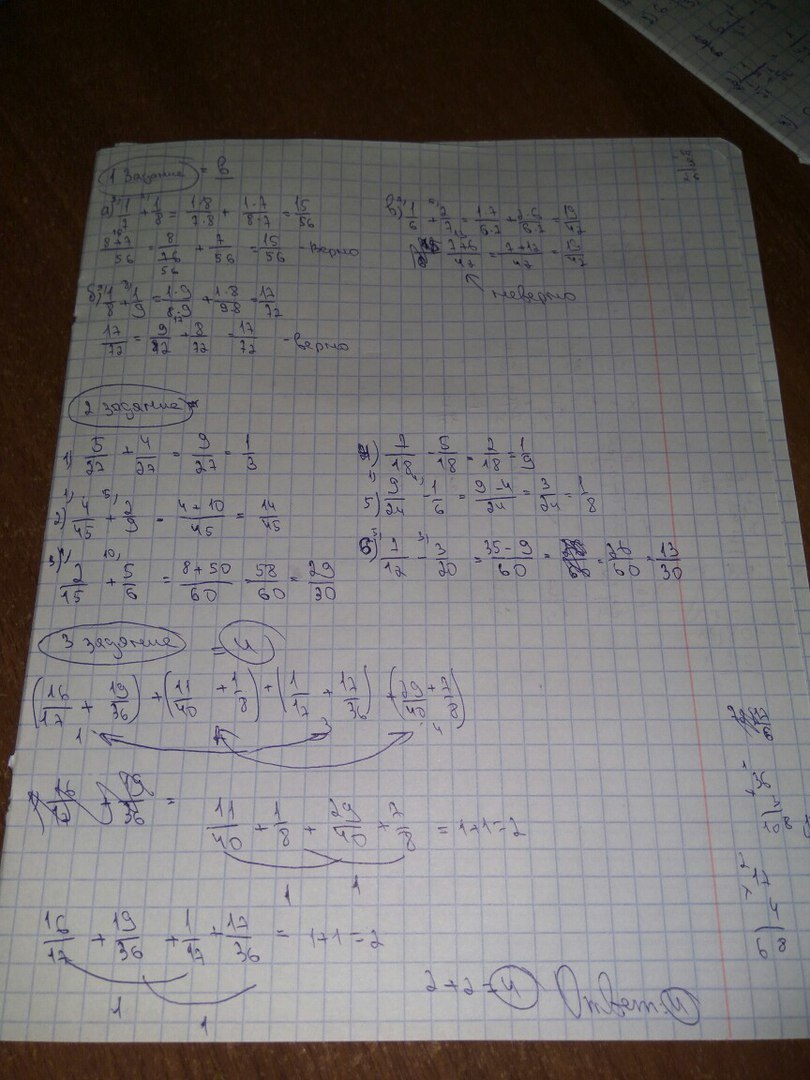 1 Задание = в
а) 1/7 + 1/8 = 1·8/7·8 + 1·7/8·7 = 15/56
8+7/56 = 8/56 + 7/56 = 15/56 - верно
б) 1/8 + 1/9 = 1·9/8·9 + 1·8/9·8 = 17/72
17/72 = 9/72 + 8/72 = 17/72 - верно
в) 1/6 + 2/7 = 1·7/6·7 + 2·6/6·7 = 19/42
= 7+12/42 = 19/42
неверно
2 задание
1) 5/27 + 4/27 = 9/27 = 1/3
2) 4/45 + 2/9 = 4+10/45 = 14/45
3) 2/15 + 5/6 = 8+50/60 = 58/60 = 29/30
4) 7/18 - 5/18 = 2/18 = 1/9
5) 9/24 - 1/6 = 9-4/24 = 3/24 = 1/8
6) 7/12 - 3/20 = 35-9/60 = 26/60 = 13/30
3 задание = 4
(16/17 + 19/36) + (11/40 + 1/8) + (1/17 + 17/36) + (29/40 + 7/8)
1 3 4
16/17 + 19/36 =
11/40 + 1/8 + 29/40 + 7/8 = 1+1=2
1 1
16/17 + 19/36 + 1/17 + 17/36 = 1+1=2
1 1
2+2=4 Ответ: 4
36
3
108
17
4
68